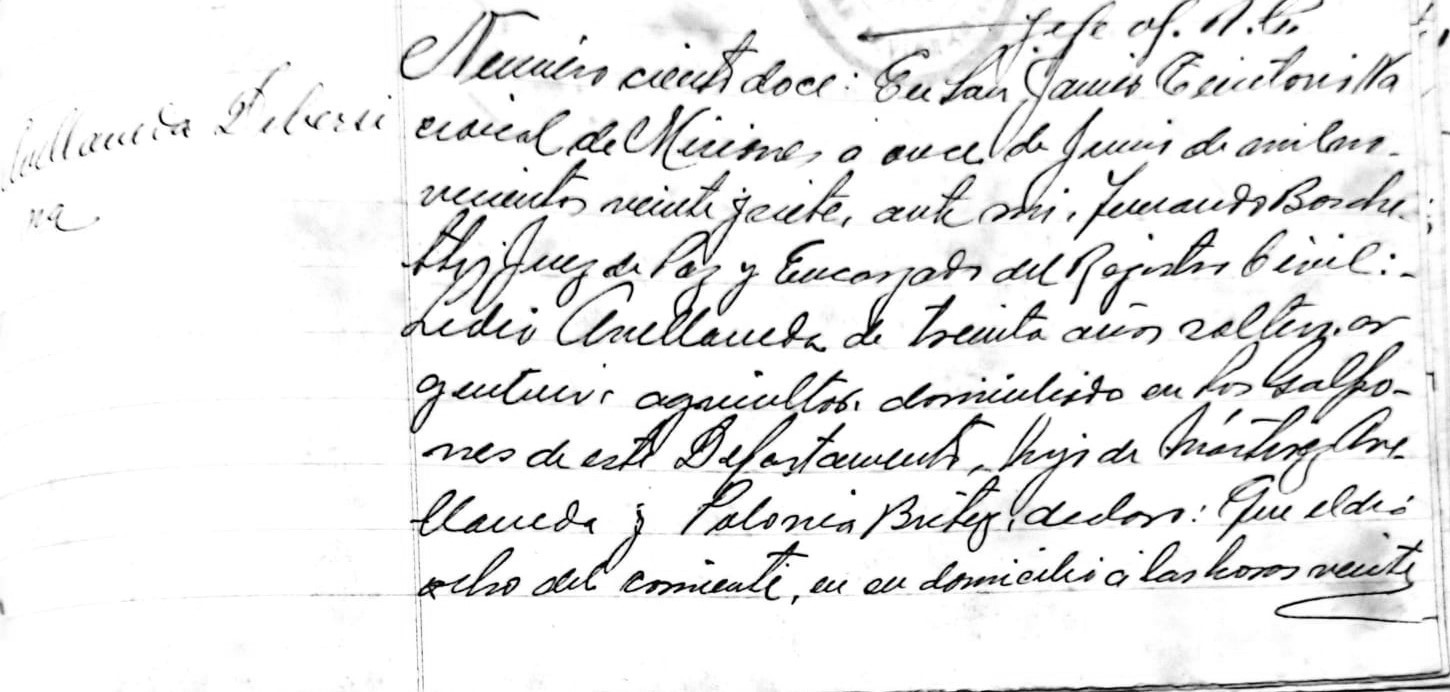 Jefe of. R. C.
Número ciento doce: En San Javier Territorio Na
cional de Misiones a once de Junio de mil no-
vecientos veinte y siete, ante mi, Fernando Borche-
Juez de Paz y Encargado del Registro Civil:-
Lidio Avellaneda de treinta años soltero, ar
gentino, agricultor, domiciliado en los Galpo-
nes de este Departamento, hijo de Mártirez Ave-
llaneda y Polonia Britez, declaro: Que el día
ocho del corriente, en su domicilio a las horas veinte
Avellaneda Libersi
na